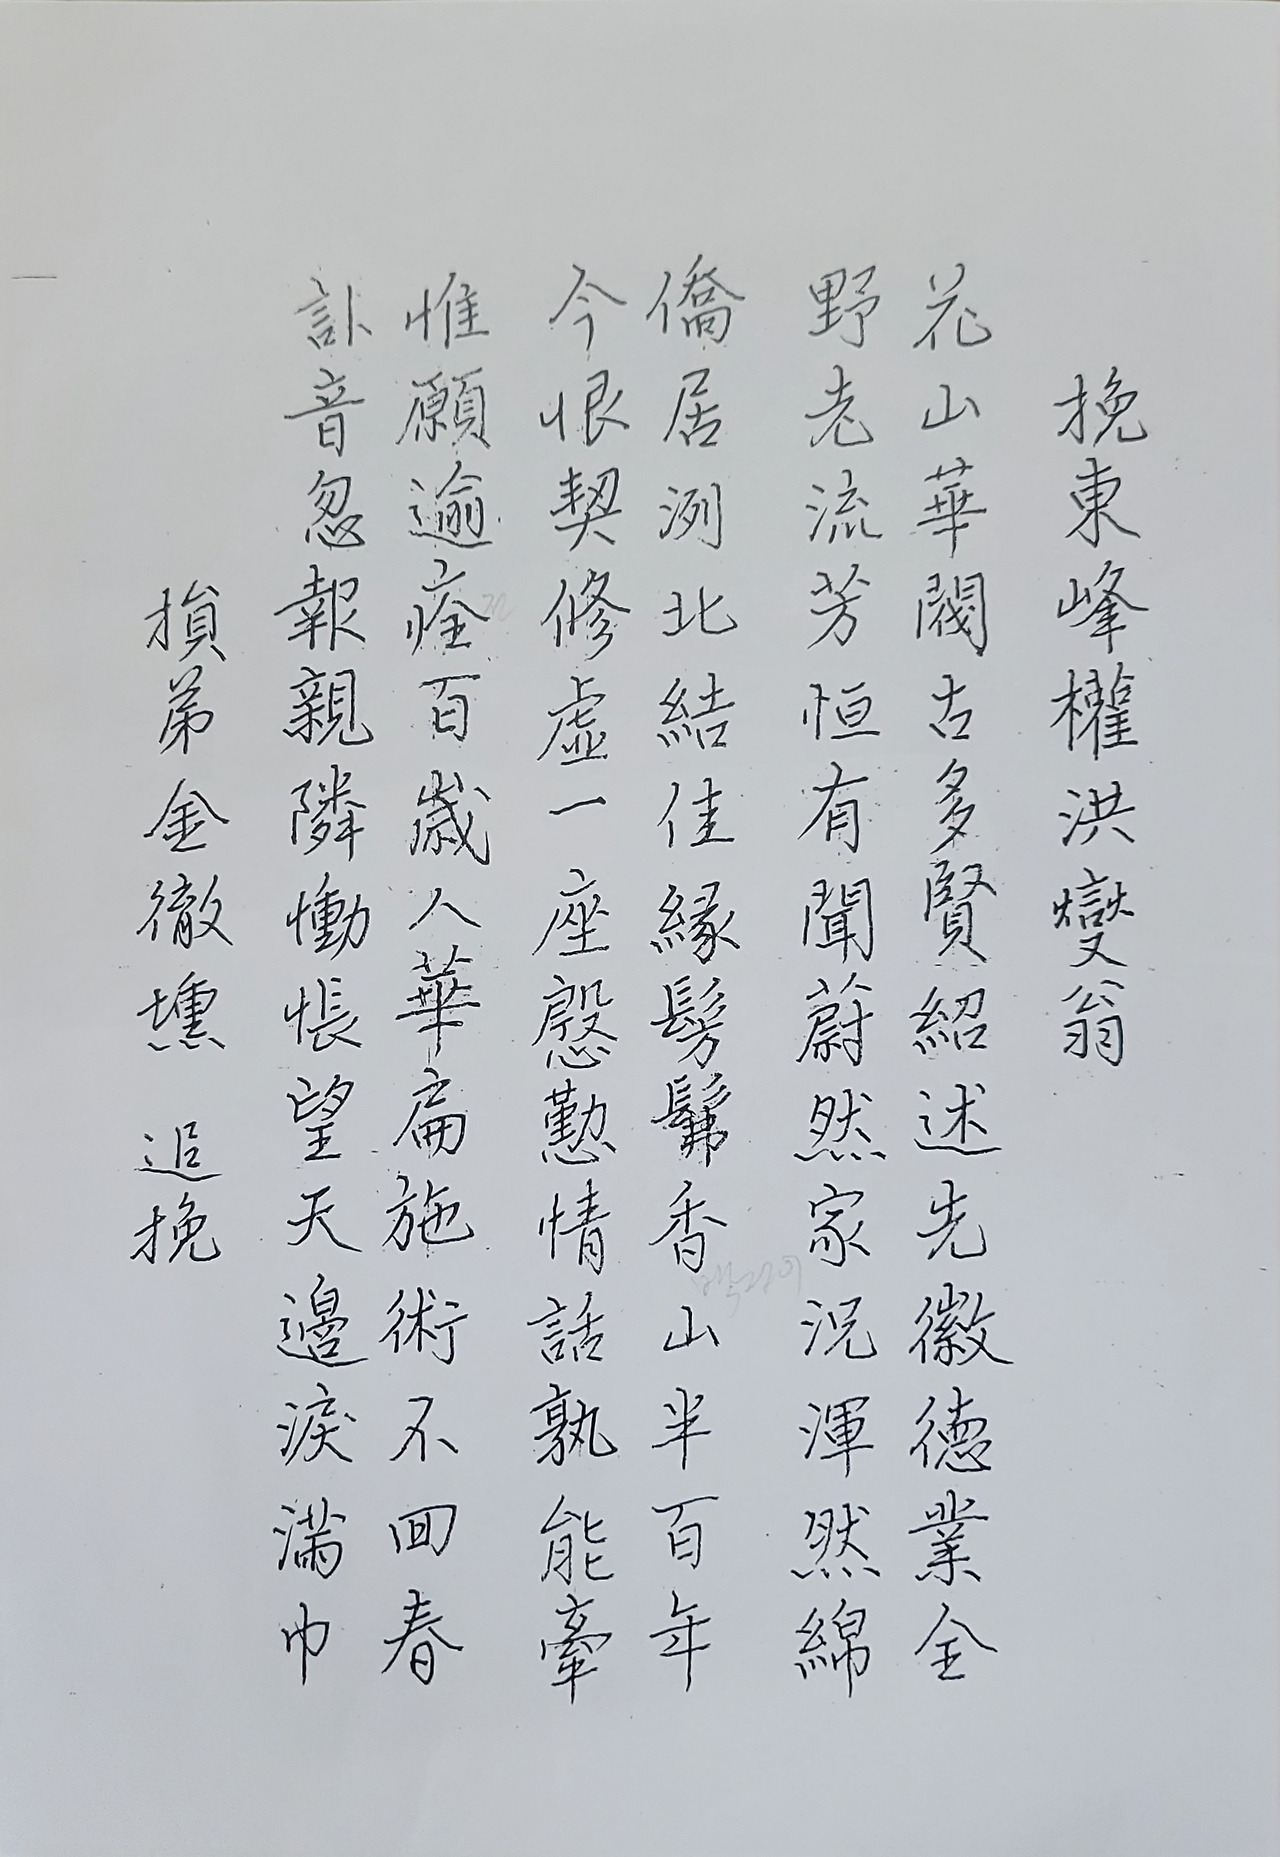 挽東峰權洪燮翁
花山華閥古多賢紹述先徽德業全
野老流芳恒有聞蔚然家況渾然綿
僑居洌北結佳緣髣髴香山半百年
今恨契修虛一座慇懃情話孰能牽
惟願逾痊百歲人華扁施術不回春
訃音忽報親隣慟悵望天邊淚滿巾
損弟金徹壎 追挽